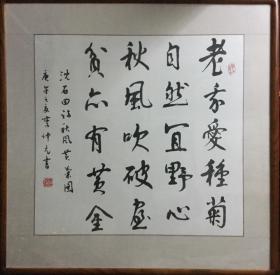 老我愛種菊
自然宜野心
秋風吹破屋
貧亦有黃金
沈石田詩秋風黃菊圖
庚午之夏李仲元書